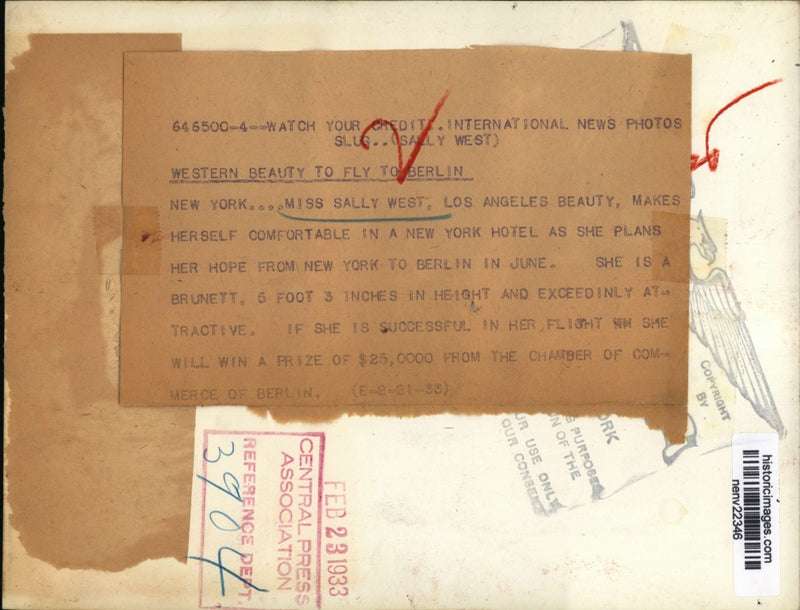 646500-4--WATCH YOUR CREDIT..INTERNATIONAL NEWS PHOTOS
SLUG..(SALLY WEST)
WESTERN BEAUTY TO FLY TO BERLIN
NEW YORK....MISS SALLY WEST, LOS ANGELES BEAUTY, MAKES
HERSELF COMFORTABLE IN A NEW YORK HOTEL AS SHE PLANS
HER HOPE FROM NEW YORK TO BERLIN IN JUNE. SHE IS A
BRUNETT, 5 FOOT 3 INCHES IN HEIGHT AND EXCEEDINLY AT-
TRACTIVE. IF SHE IS SUCCESSFUL IN HER FLIGHT SHE
WILL WIN A PRIZE OF $25,0000 FROM THE CHAMBER OF COM-
MERCE OF BERLIN. (E-2-21-33)
2
COPYRIGHT
BY
ORK
PURPOSES
ON OF THE
UR USE ONLY
OUR CONSENT
FEB 23 1933
CENTRAL PRESS
ASSOCIATION
REFERENCE DEPT.
3904
historicimages.com
nenv22346